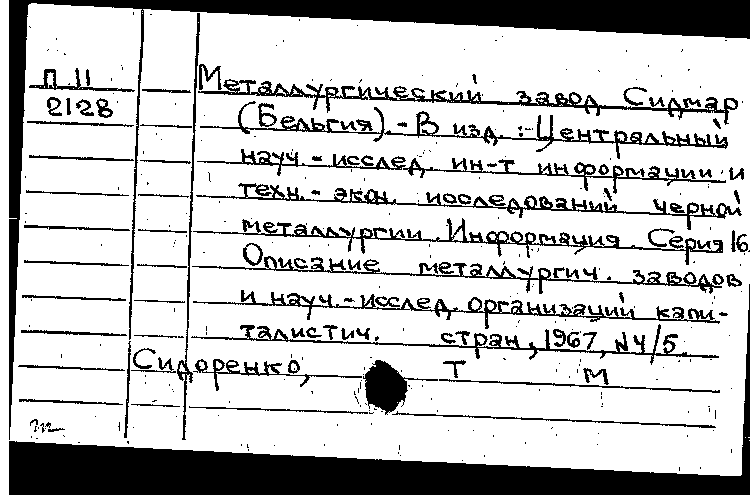 П 11
2128
Металлургический завод Сидмар
(Бельгия).- В изд.: Центральный
науч.-исслед. ин-т информации и
техн.-экон. исследований черной
металлургии. Информация. Серия 16
Описание металлургич. заводов
и науч.-исслед. организаций капи-
талистич. стран, 1967, №4/5.
Сидоренко, Т М